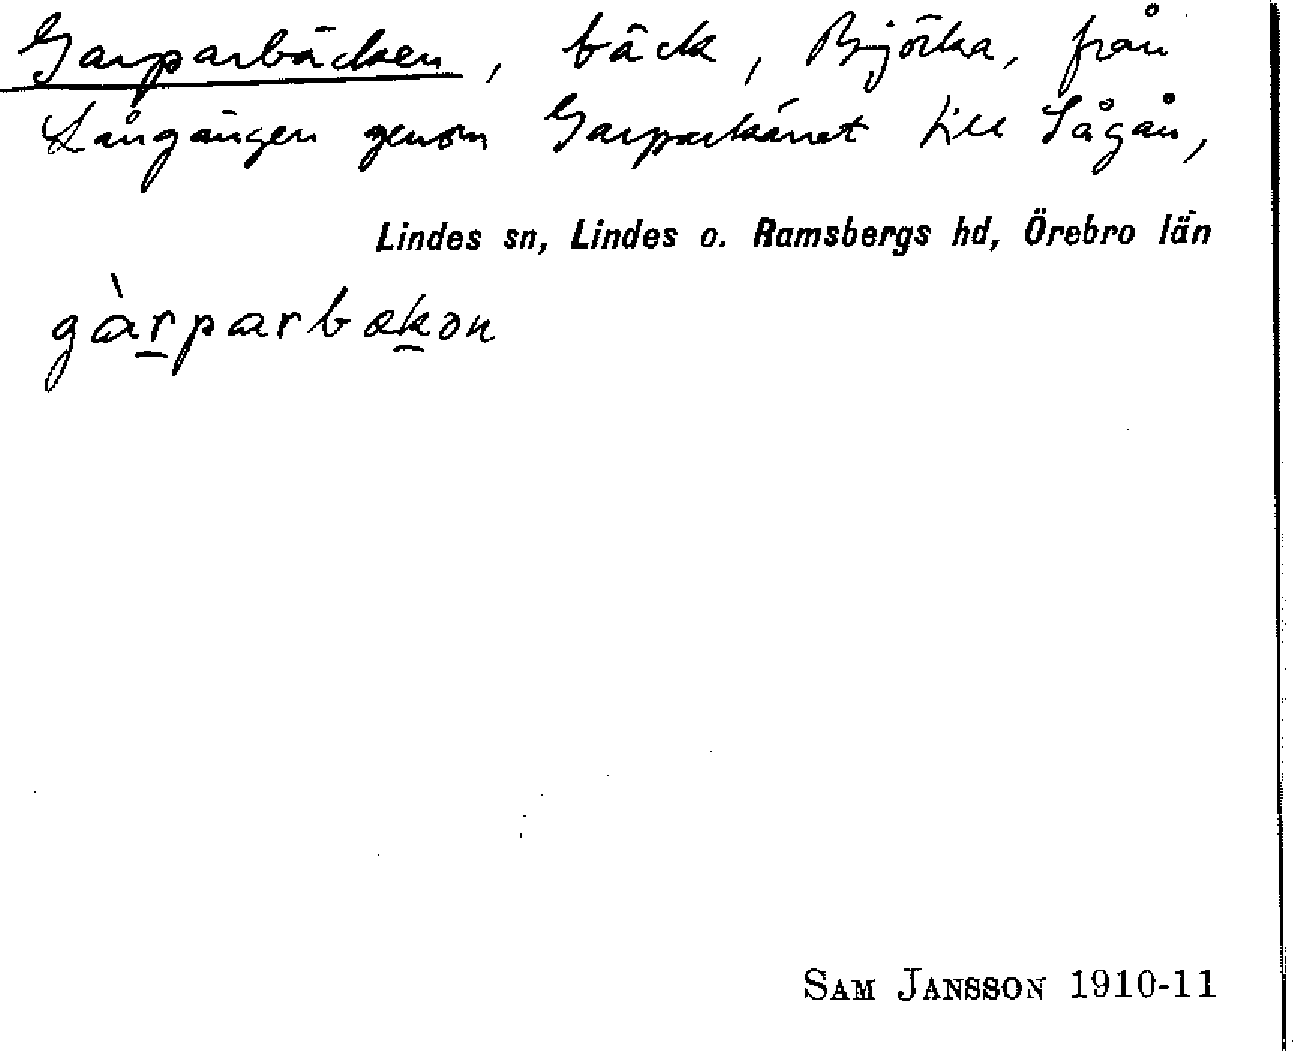 Garparbäcken, bäck, Björka, från
Långängen genom Garparkärret till Sågån,
Lindes sn, Lindes o. Ramsbergs hd, Örebro län
gàrparbækon
SAM JANSSON 1910-11